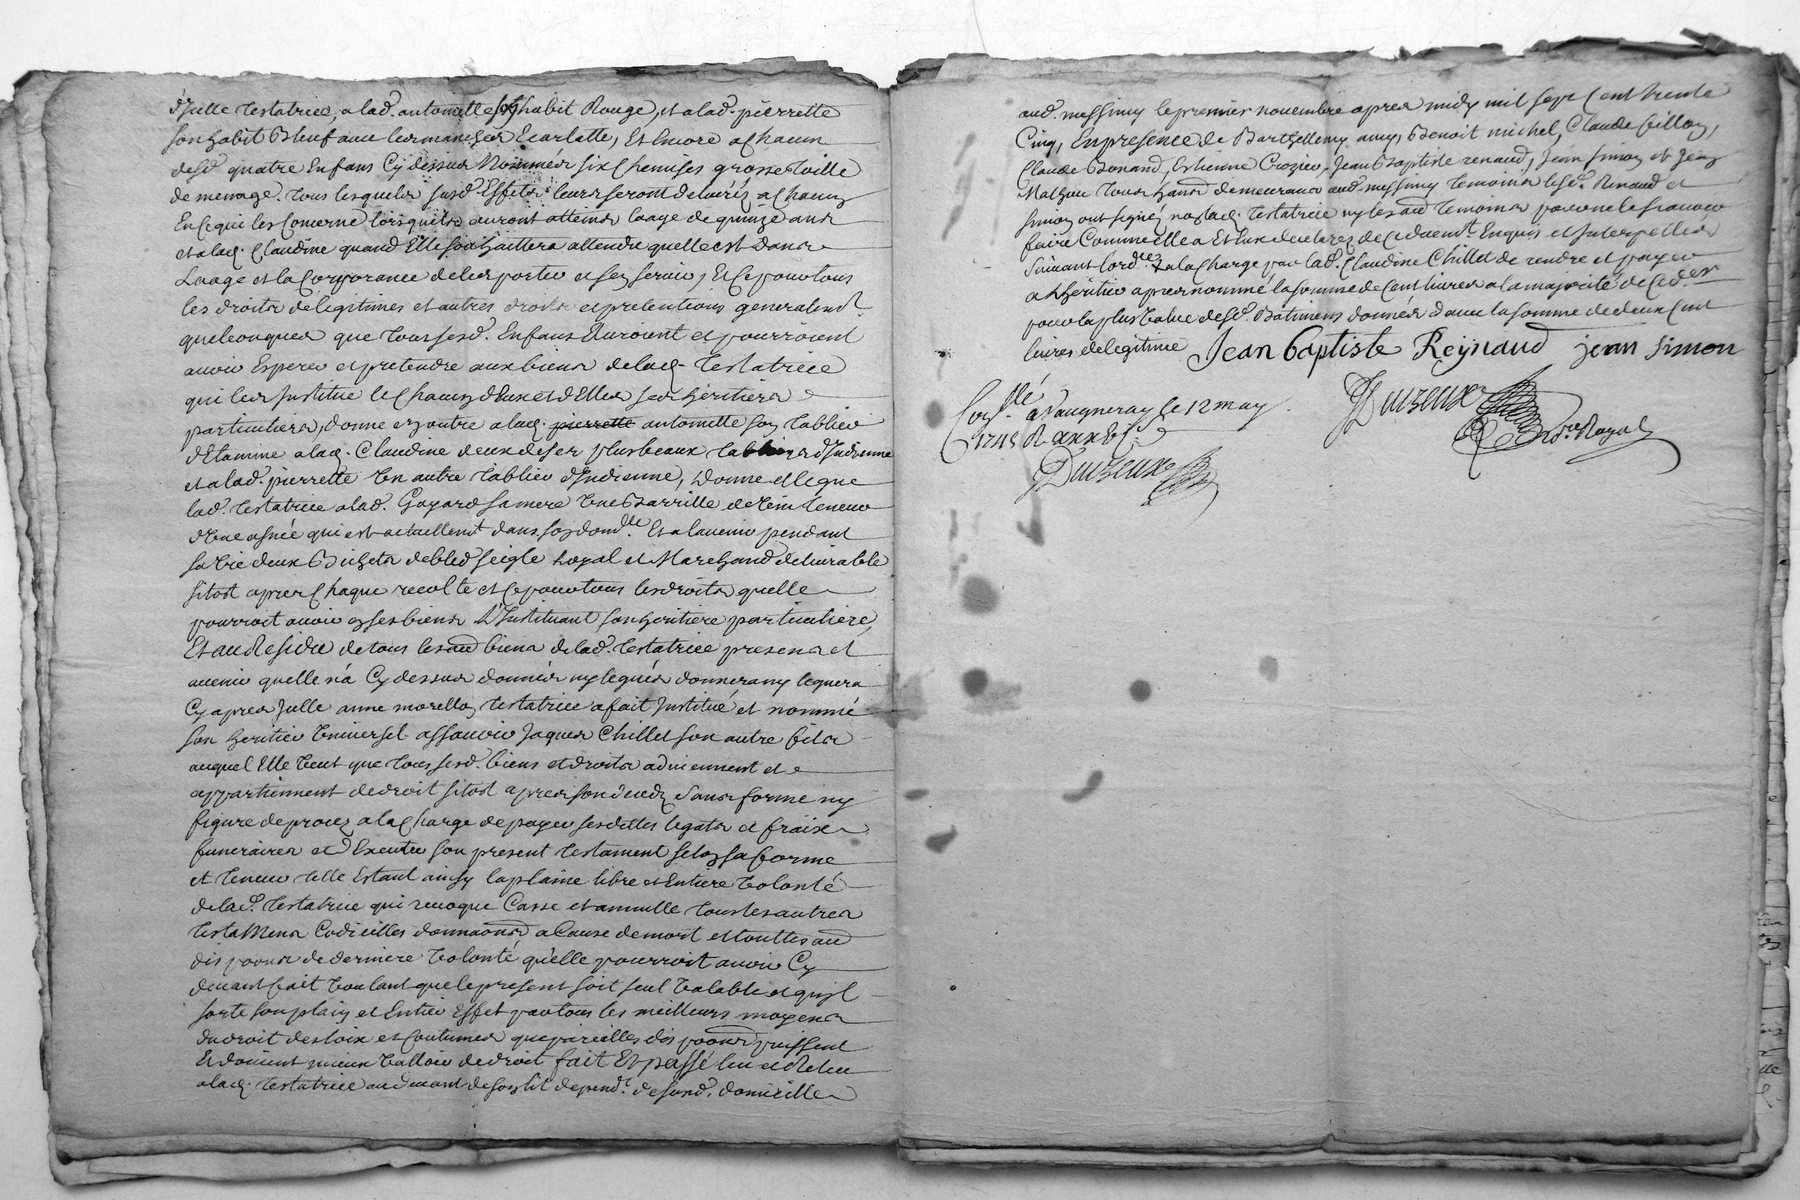 d'Icelle testatrice, a lad. antoinette son habit Rouge, et a lad. pierrette
son habit Bleuf avec les manches Ecarlatte, Et encore a chacun
desd. quatre Enfans Cy dessus Nommés six chemises grosse toille
de menage. tous lesquels susd. Effets leurs seront delivrés a chacun
En ce qui les Concerne lorsquils auront atteins laage de quinze ans
et a lad. Claudine quand Elle souhaittera attendu quelle est dans
Laage et la Corporance de les porter et sen servir, Et ce pour tous
les droits de legitimes et autres droits et pretentions generalemt.
quelconques que tous sesd. Enfans auroient et pourroient
avoir Esperer et pretendre aux biens de lad. Testatrice
qui les Institue le chacun d'Eux et d'Elles ses heritiers
particuliers, donne en outre a lad. pierrette antoinette son tablier
d'Etamine a lad. Claudine deux de ses plus beaux tabliers d'Indienne
et a lad. pierrette Un autre tablier d'Indienne, Donne et legue
lad. testatrice a lad. Goyard sa mere Une Barrille de Vin teneur
d'Une asnée qui est actuellemt. dans son domlle. Et a lavenir pendant
sa vie deux Bichets de bled seigle loyal et Marchand delivrable
sitost apres chaque recolte et ce pour tous les droits quelle
pourroit avoir en ses biens L'Instituant son heritiere particuliere,
Et au Residu de tous les aud. biens de lad. testatrice presens et
avenir quelle n'a Cy dessus donnés ny legués donnera ny leguera
Cy apres Icelle anne morellon testatrice a fait Institué et nommé
son heritier Universel assavoir Jaques Chillet son autre fils
auquel Elle Veut que tous sesd. biens et droits adviennent et
appartiennent de droit sitost apres son deceds sans forme ny
figure de procez a la charge de payer ses dettes legats et fraix
funeraires et d'Executer son present testament selon sa forme
et teneur telle Estant ainsy la plaine libre et Entiere Volonté
de lad. testatrice qui revoque Casse et annulle tous les autres
testamens Codicilles donnaons a Cause de mort et touttes au
dispoons de derniere Volonté quelle pourroit avoir Cy
devant fait Voulant que le present soit seul Valable et quil
sorte son plain et Entier Effet par tous les meilleurs moyens
du droit des loix et Coutumes que pareilles dispoons puissent
Et doivent mieux Valloir de droit fait Et passé leu et Releu
a lad. testatrice au devant de son lit depend. de sond. domicille
aud. messimy le premier novembre apres midy mil sept cent trente
Cinq, En presence de Barthellemy Benoit michel, Claude
Claude Bonand, Estienne Crozier, Jean Baptiste renaud, Jean simon et Jean
Mathieu tous habt. demeurans aud. messimy temoins les sr. Renaud et
simon ont signez non lad. testatrice ny les au temoins pour ne le scavoir
faire Comme elle a Et Eux declarez de ce duemt. Enquis et Interpellés
suivant lordce. a la charge par lad. Claudine Chillet de rendre et payer
a Lheritier apres nommé la somme de cent livres a la majorité de ced. der
pour la plus Value desd. Batimens donnés avec la somme de deux cent
livres de legitime Jean baptiste Reynaud jean simon
Conllé. a Vaugneray le 12 may
1745
Duizeux
Duizeux
no. Royal